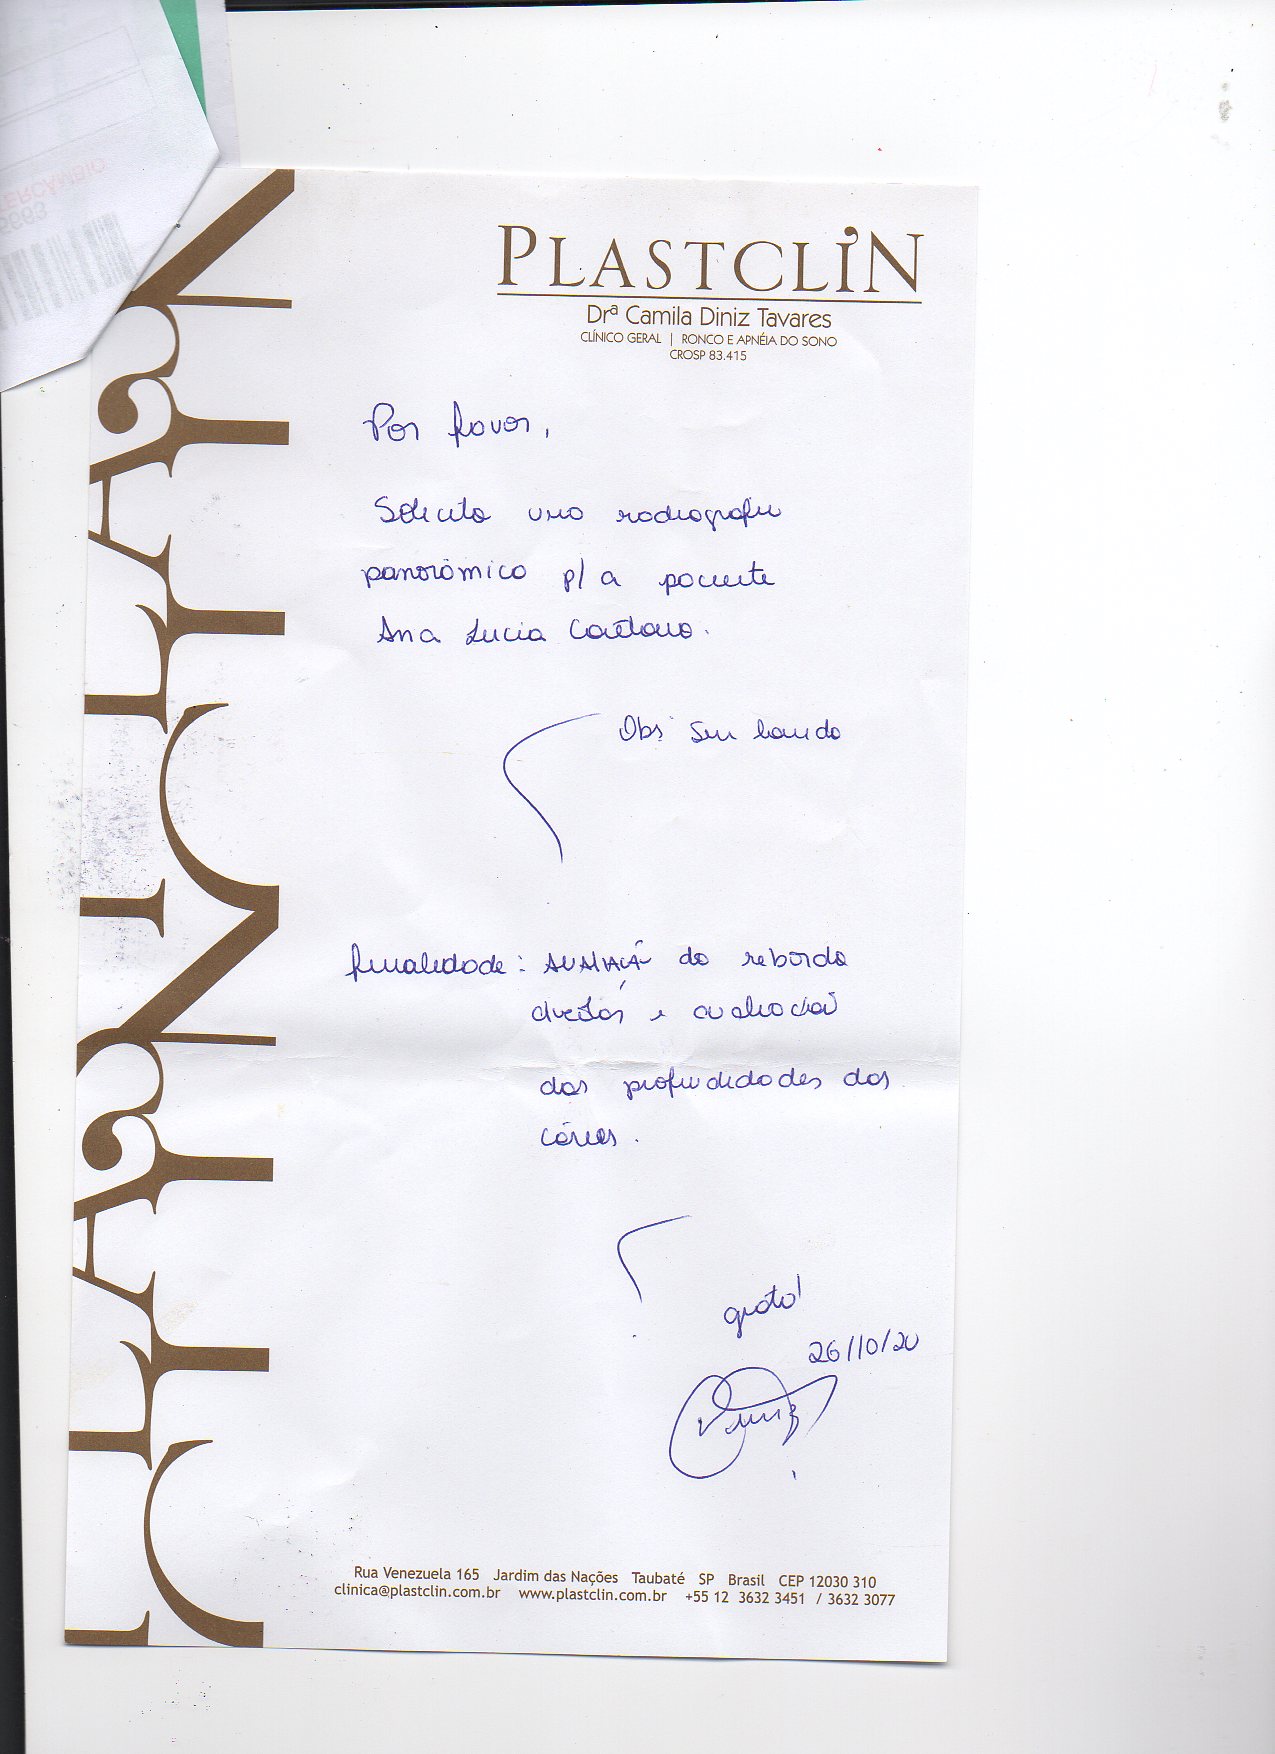 PLASTCLIN
Drª Camila Diniz Tavares
CLÍNICO GERAL | RONCO E APNÉIA DO SONO
CROSP 83.415
Por favor,
Solicito uma radiografia
panorâmica p/ a paciente
Ana Lucia Caetano.
Obs: Sem laudo
finalidade: AVALIAÇÃO do rebordo
e avaliação
das profundidades das
cáries.
grata!
26/10/20
Rua Venezuela 165 Jardim das Nações Taubaté SP Brasil CEP 12030 310
clinica@plastclin.com.br www.plastclin.com.br +55 12 3632 3451 / 3632 3077
PLASTCLIN
ERCÂMBIO